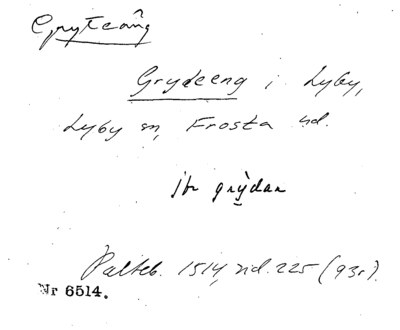 Gryteäng
Grydeeng i Lyby,
Lyby sn, Frosta hd.
jfr grỳdan
Palteb. 1514, sid. 225 (93r).
Nr 6514.